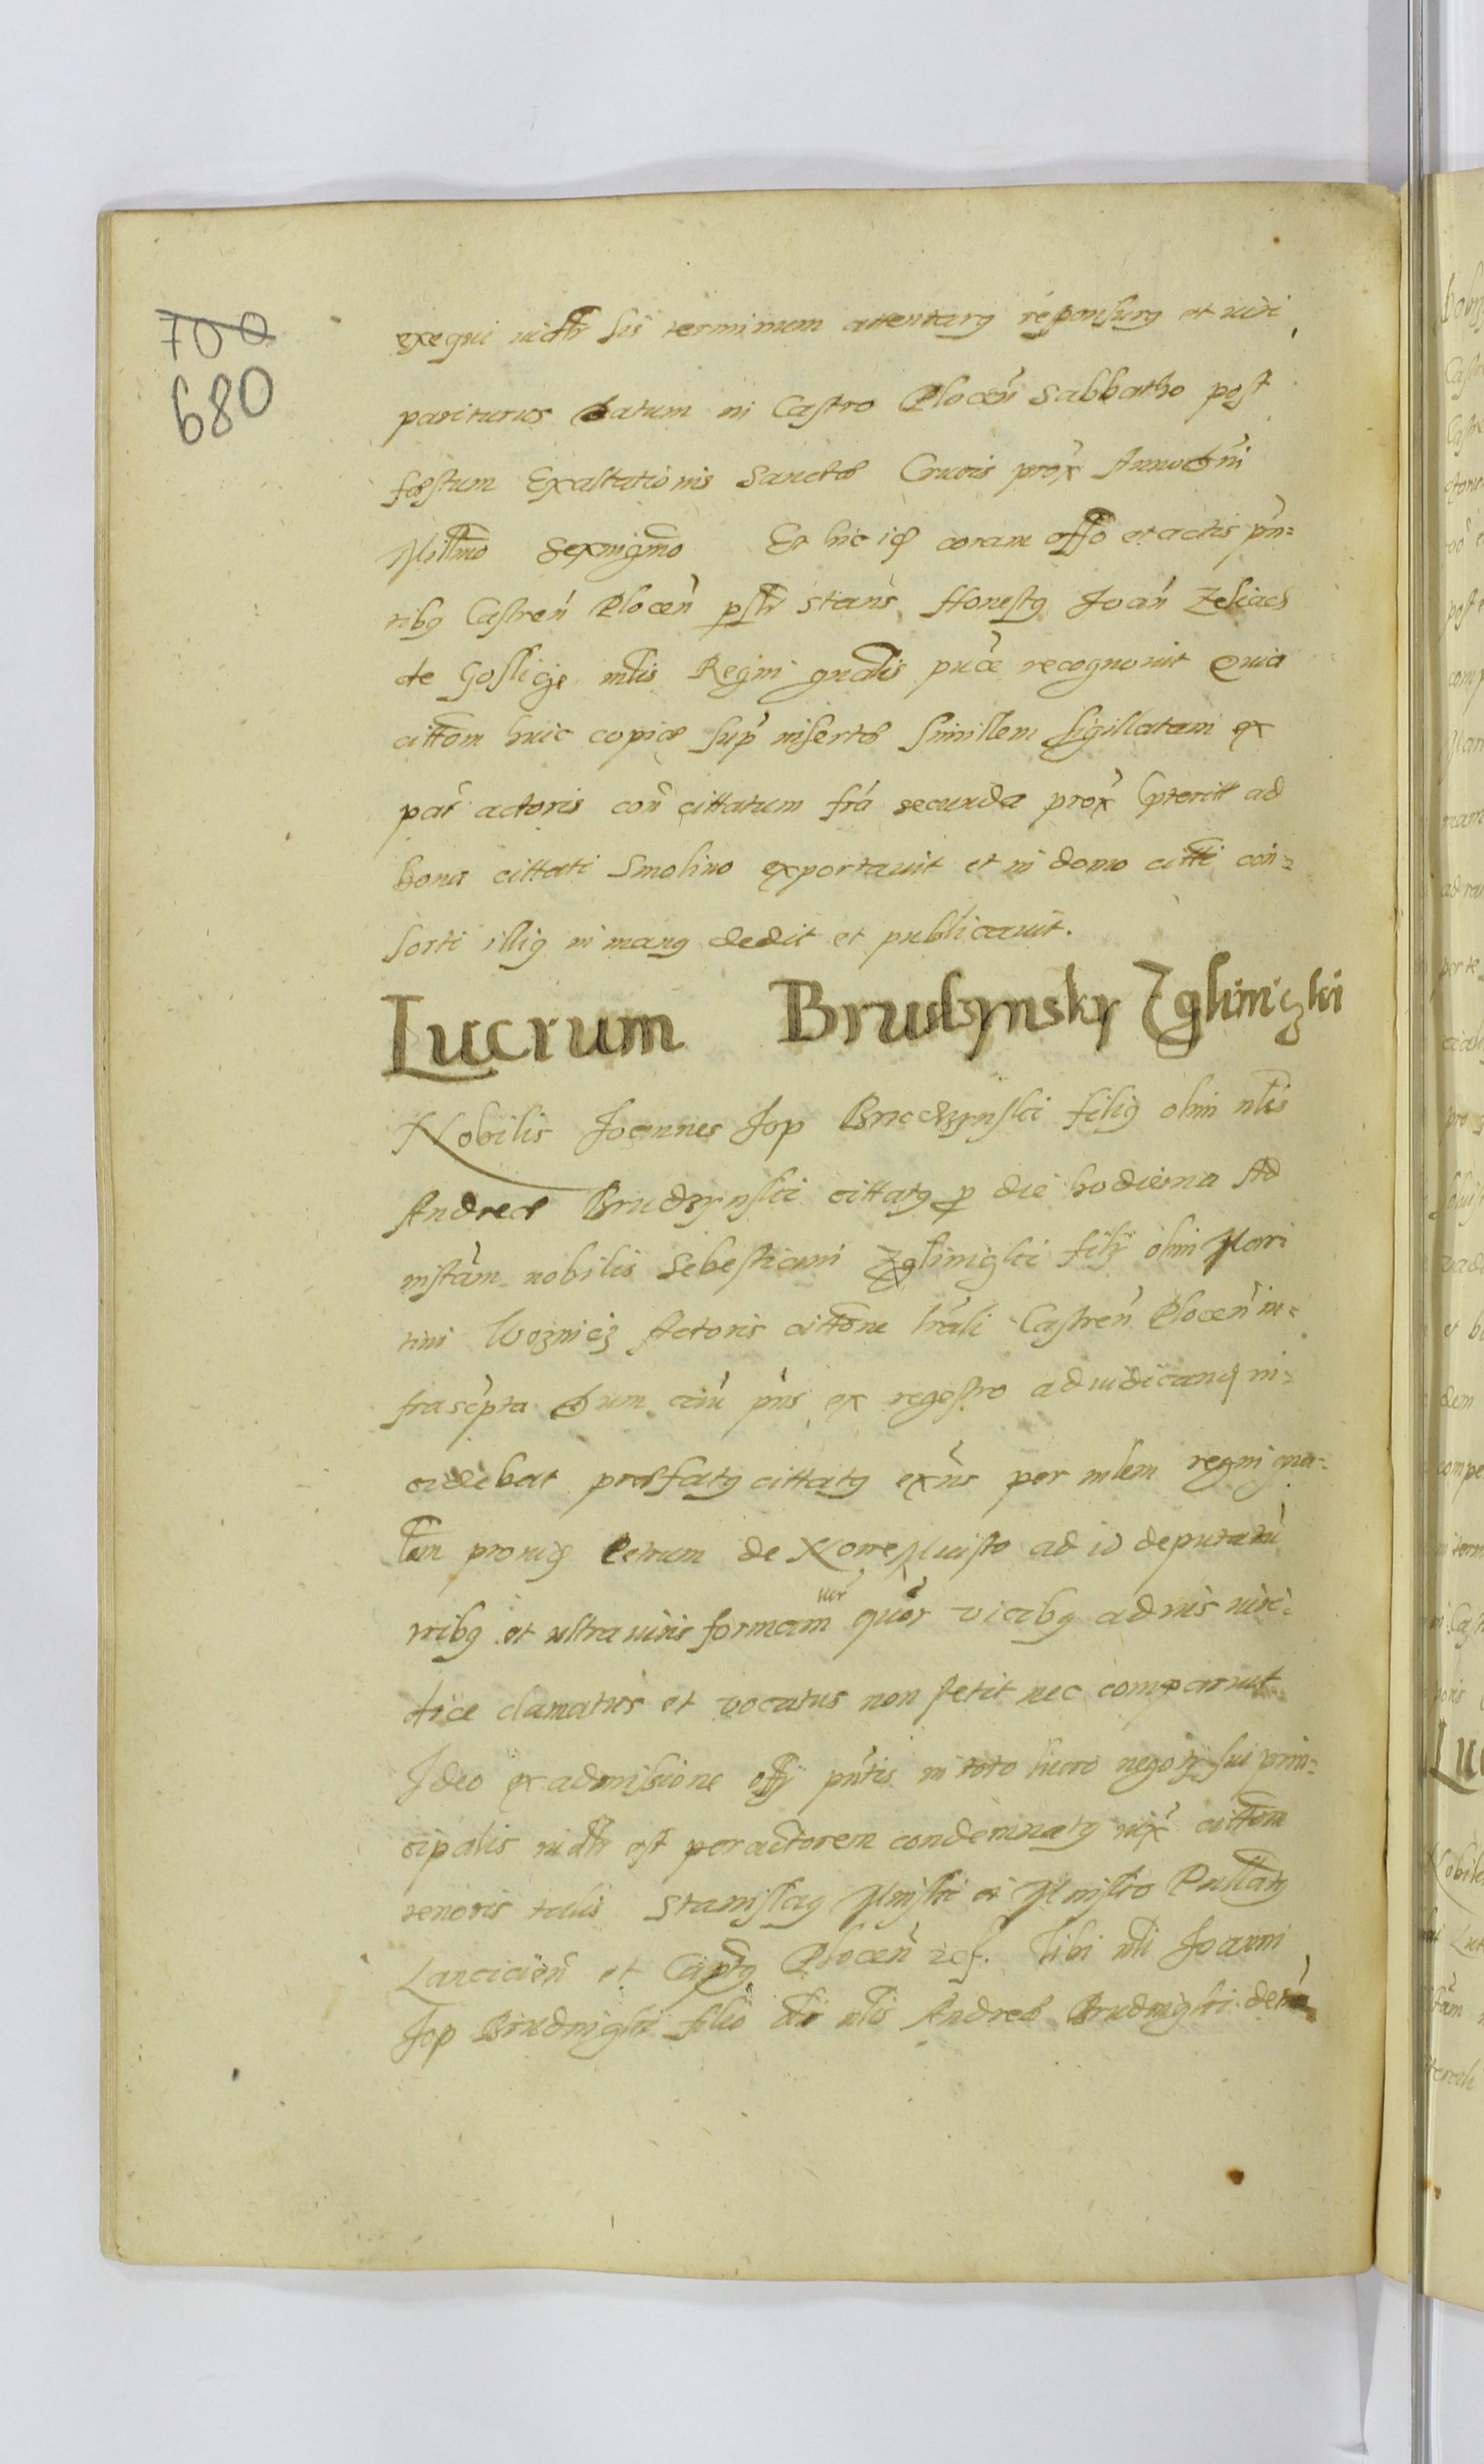 700
680
exequi iudtr sis terminum attentarꝰ responsurꝰ et iuri
pariturus Datum in Castro Plocen̄ Sabbatho post
festum Exaltationis Sanctæ Crucis prox Anno dn̄i
Millmo Sexmgmo Et hic iꝗ coram offo et actis pn̄=
tibꝰ Castren̄ Plocen̄ pstr stans Honestꝰ Joan̄ Zeliach
de Goslicze mlis Regni gnalis puce recognovit Quia
cittom huic copiæ sup̄ insertæ similem sigillatam ex
par̄ actoris con̄ cittatum fr̄a secunda prox̄ pterit ad
bona cittati Smolino exportavit et in domo citti con=
sorti illiꝰ in manꝰ dedit et publicavit.
Lucrum Brudzynsky Zglinizki
Nobilis Joannes Jop Brudzynski filiꝰ olim nlis
Andreæ Brudzynski cittatꝰ p die hodierna Ad
instām nobilis Sebestiani Zglinizki filÿ olim Mar=
tini Woznicz Actoris cittone lrāli Castren̄ Plocen̄ in=
frascpta Dum cāu pn̄s ex regestro adiudicanꝗ in=
cidebat præfatꝰ cittatꝰ exn̄s per mlem regni gna=
lem provid Petrum de Xorre Miisto ad id deputatū
tribꝰ et ultra iuris formam iur̄ quor vicibꝰ ad ius iuri=
dice clamatus et vocatus non stetit nec comparuit
Ideo ex admissione offÿ pn̄tis in toto lucro negotÿ sui prin=
cipalis iudtr est per actorem condemnatꝰ iux̄ cittom
tenoris talis Stanislaꝰ Minski de Minsko Pallatꝰ
Lancicien̄ et Captꝰ Plocen̄ zcs. Tibi nli Joanni
Jop Brudnizki filio nlis Andreæ Brudnizki de